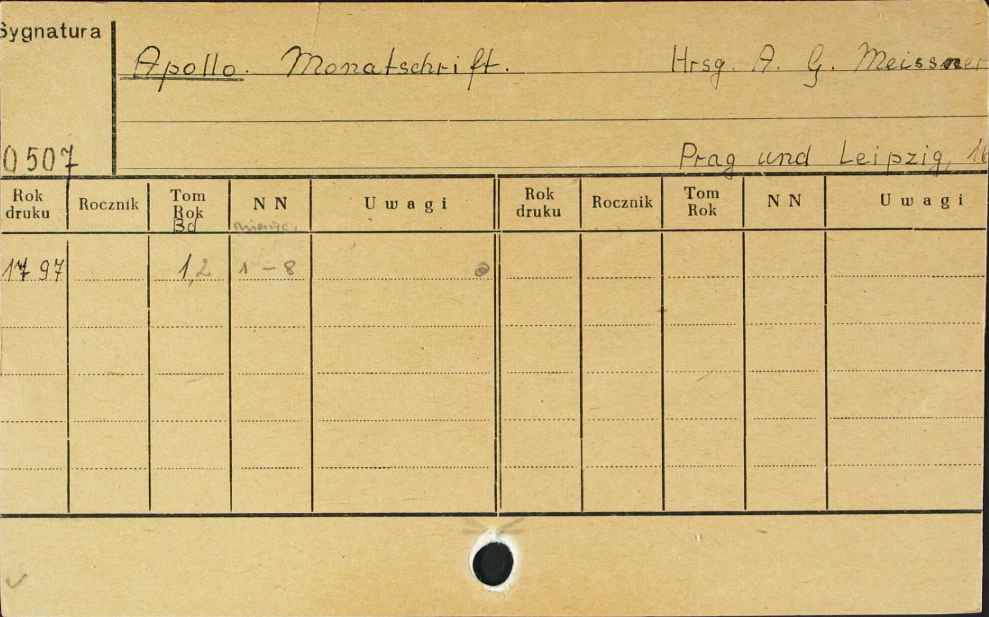 Sygnatura
Apollo. Monatschrift. Hrsg. A. G. Meissner
0507
Prag und Leipzig, 16
Rok druku Rocznik Tom Rok Bd NN miesiąc, Uwagi Rok druku Rocznik Tom Rok NN Uwagi
1797 1,2 1-8